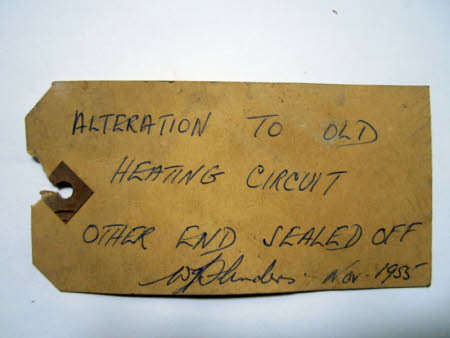 ALTERATION TO OLD
HEATING CIRCUIT
OTHER END SEALED OFF
Nov. 1955